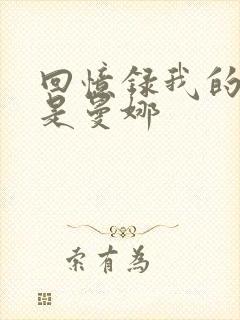 回憶録我的
是曼娜
索有為